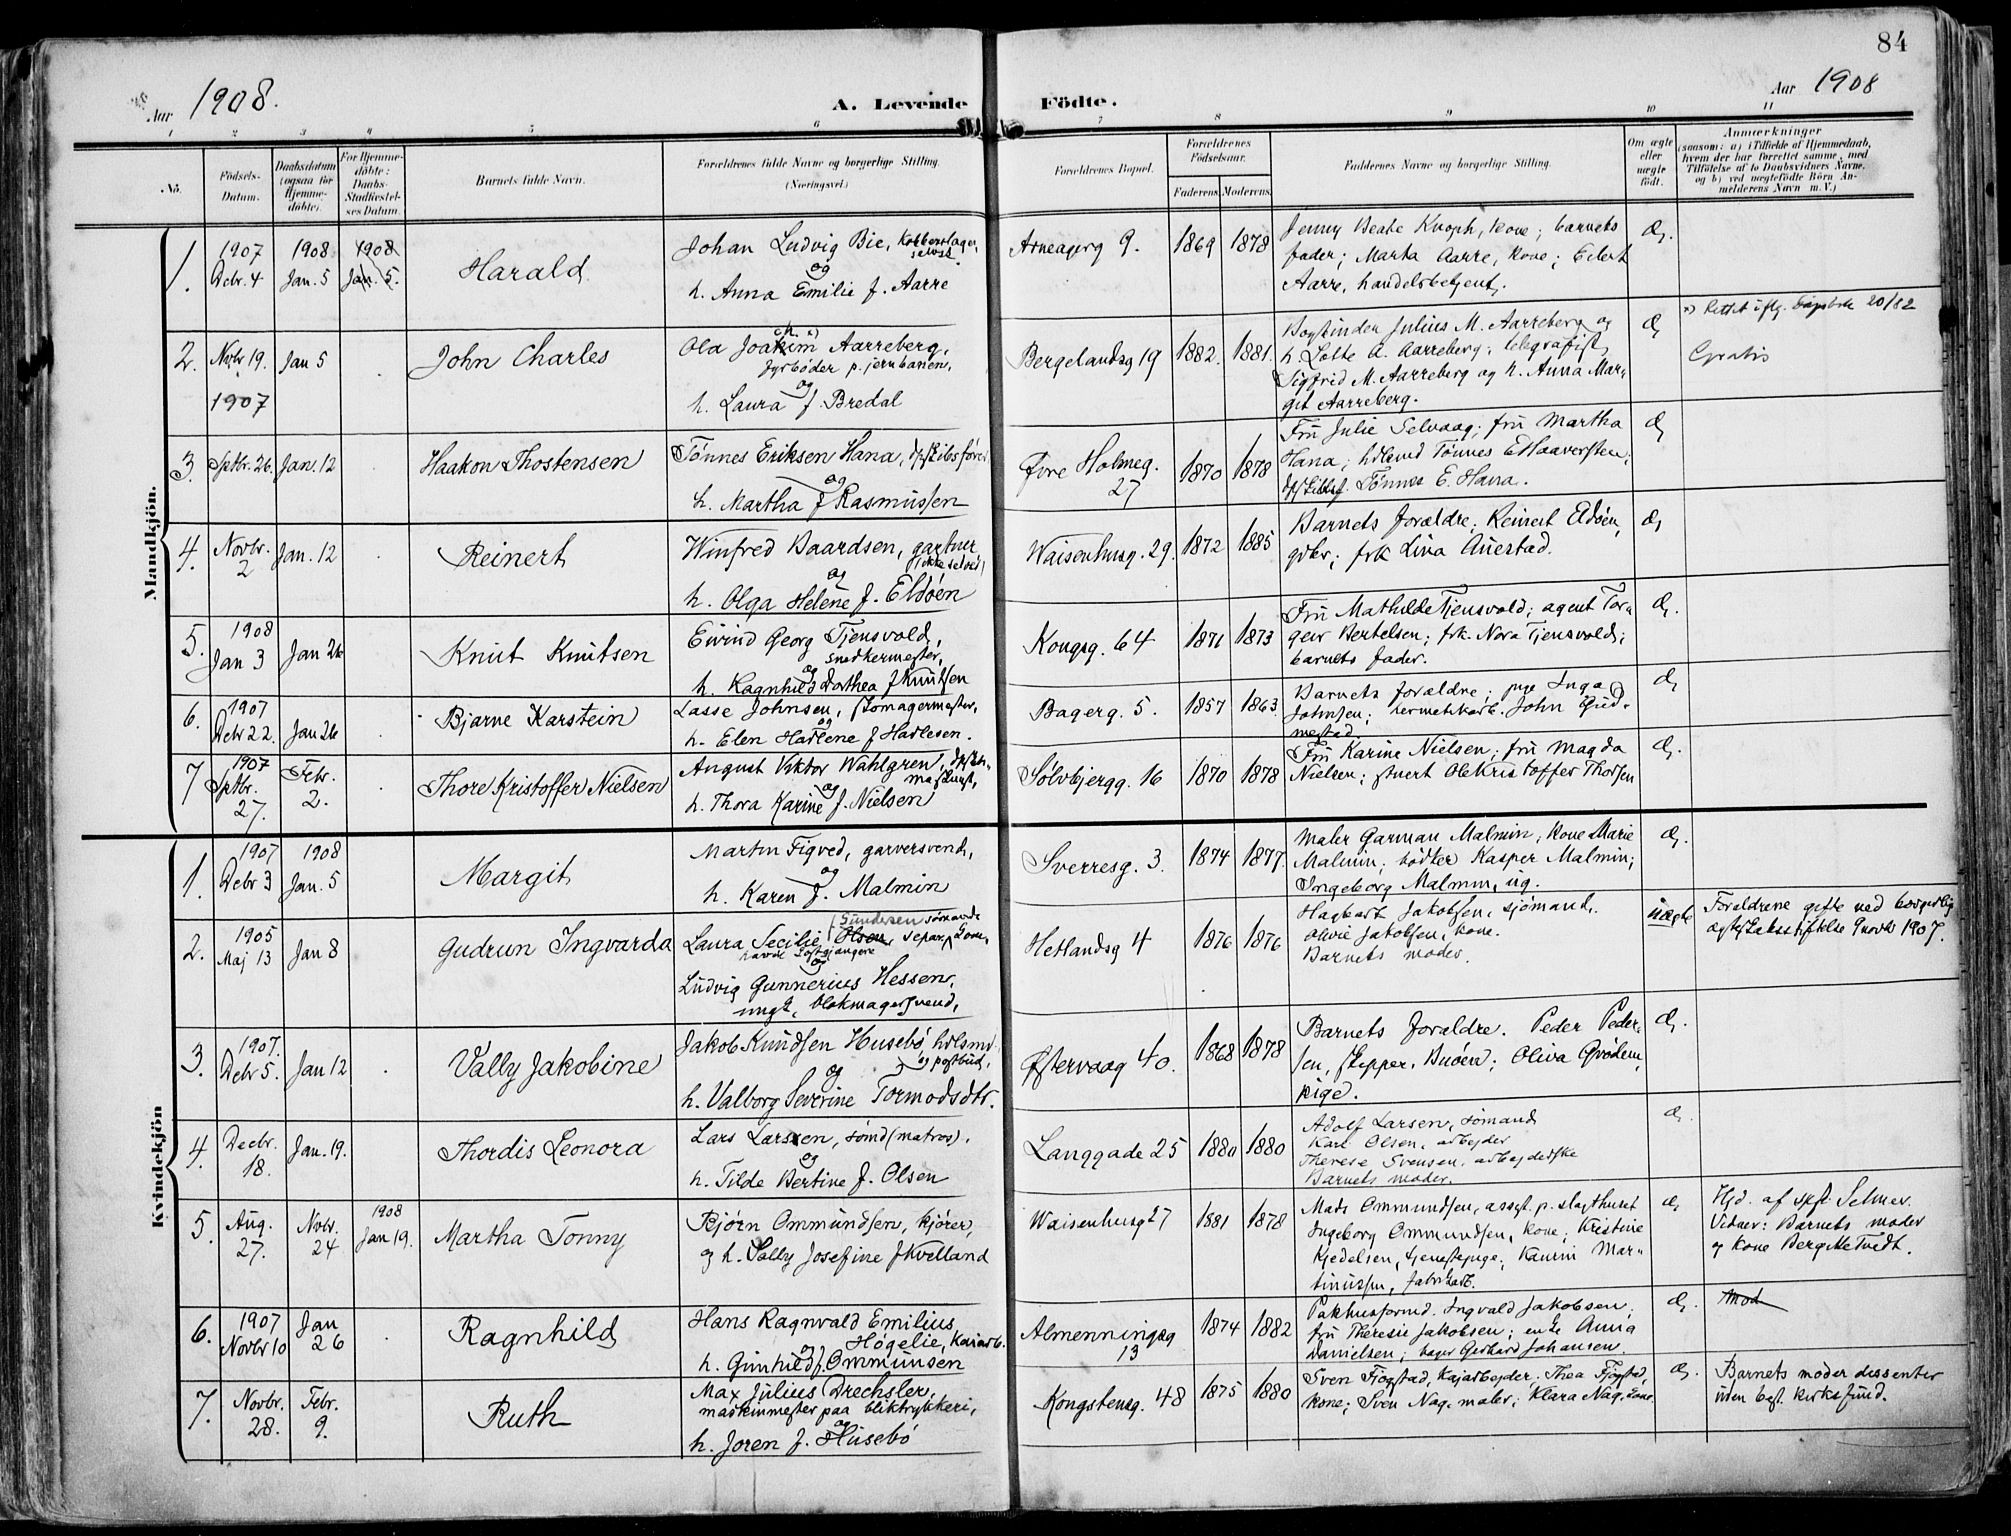 84
Aar 1908.
A. Levende
Födte.
Aar 1908
1 2 3 4 5 6 7 8 9 10 11
No.
Födsels-
Datum.
Daabsdatum
(ogsaa for
Hjemme-
döbte).
For Hjemme-
döbte:
Daabs-
Stadfæstel-
ses Datum.
Barnets fulde Navn.
Forældrenes fulde Navne og borgerlige Stilling.
(Næringsvei.)
Forældrenes Bopæl.
Forældrenes
Födselsaar.
Faderens. Moderens.
Faddernes Navne og borgerlige Stilling.
Om ægte
eller
uægte
födt.
Anmærkninger
(saasom: a) i Tilfælde af Hjemmedaab,
hvem der har forrettet samme, med
Tilföielse af to Daabsvidners Navne.
og b) ved uægtefödte Börn An-
melderens Navn m. V.)
Mandkjön.
1. 1907 Debr. 4 1908 Jan. 5 1908 Jan. 5.
Harald
Johan Ludvig Bie, Kobberslager,
og
h. Anna Emilie f. Aarre
Arneagerg 9. 1869 1878
Jenny Beate Knoph, kone; barnets
fader; Marta Aarre, kone; Eilert
Aarre, handelsbetjent.
Æ.
2. Novbr 19. 1907 Jan 5
John Charles
Ola Joakim Aarreberg,
fyrbøder p. jernbanen,
og
h. Laura f. Bredal
Bergelandsg 19 1882. 1881.
Bogbinder Julius M. Aarreberg og
h. Lotte A. Aarreberg; telegrafist
Sigfrid M. Aarreberg og h. Anna Mar-
git Aarreberg.
Æ
Rettet iflg. 20/82
Gratis
3. Sptbr. 26. Jan. 12
Haakon Thostensen
Tønnes Eriksen Hana,
og
h. Martha f Rasmussen
Øvre Holmeg. 27 1870 1878
Fru Julie Selvaag; fru Martha
Hana; Tønnes
Tønnes E. Hana.
Æ
4. Novbr. 2 Jan. 12
Reinert
Winfred Baardsen, gartner
og
h. Olga Helene f. Eldøen
Waisenhusg. 29. 1872 1885
Barnets forældre; Reinert Eldøen,
gbr; frk Lina Auestad.
Æ
5. 1908 Jan 3 Jan 26
Knut Knutsen
Eivind Georg Tjensvold,
snedkermester,
og
h. Ragnhild Dorthea f Knutsen
Kongsg. 64 1871 1873
Fru Mathilde Tjensvold; agent Tor-
geir Bertelsen; frk. Nora Tjensvold;
barnets fader.
Æ.
6. 1907 Debr 22. Jan 26
Bjarne Karstein
Lasse Johnsen, skomagermester,
og
h. Elen Helene f
Bagerg. 5. 1857 1863
Barnets forældre; pige Inga
Johnsen; hermetikarb. John Gud-
mestad.
Æ
7 1907 Sptbr. 27. Febr. 2.
Thore Kristoffer Nielsen
August Viktor Wahlgren,
og
h. Thora Karine f. Nielsen
Sølvbjergg. 16 1870 1878
Fru Karine Nielsen; fru Magda
Nielsen; stuert Ole Kristoffer Thorsen
Æ.
Kvindekjön
1. 1907 Debr 3 1908 Jan. 5
Margit
Martin Figved, garversvend,
og
h. Karen f. Malmin
Sverresg. 3. 1874 1877.
Maler Garman Malmin; kone Marie
Malmin; bødker Kasper Malmin;
Ingeborg Malmin, ug.
Æ.
2. 1905 Maj 13 Jan 8
Gudrun Ingvarda
Laura Secilie Olsen, separ.
og
Ludvig Gunnerius Hessen,
ungk, blokmagersvend,
Hetlandsg 4 1876 1876
Hagbart Jakobsen, sjömand.
Olivie Jakobsen, kone.
Barnets moder.
uægte
Forældrene gifte ved borgerlig
ægteskabsstiftelse 9 novbr 1907.
3. 1907. Debr 5. Jan 12
Valby Jakobine
Jakob Knudsen Husebö,
og postbud,
og
h. Valborg Severine Tormodsdtr.
Østervaag 40. 1868 1878
Barnets forældre. Peder Peder-
sen, skipper, Buöen; Oliva Grödem,
pige.
Æ.
4. Decbr. 18. Jan. 19.
Thordis Leonora
Lars Larsen, sömd (matros),
og
h. Tilde Bertine f. Olsen
Langgade 25 1880 1880
Adolf Larsen, sømand
Karl Olsen, arbejder
Therese Svensen, arbejderske
Barnets moder.
Æ.
5. Aug. 27. Novbr. 24 1908 Jan 19.
Martha Tonny
Bjørn Ommundsen, kjører,
og h. Sally Josefine f Kvelland
Waisenhusg 27 1881 1878
Mads Ommundsen, assst. p. slagthuset
Ingeborg Ommundsen, kone; Kristine
Kjedelsen, tjenestepige; Kaurin Mar-
tinussen, fabrikarb.
Æ
Hjd. af Selmer.
Vidner: Barnets moder
og kone Tvedt.
6. 1907 Novbr 10 Jan 26
Ragnhild
Hans Ragnvald Emilius
Høgelie, kaiarb.
og
h. Gunhild f. Ommunsen
Almenningsg 13 1874 1882
Pakhusformd. Ingvald Jakobsen;
fru Theresie Jakobsen; enke Anna
Danielsen; bager Gerhard Johansen.
Æ.
Mod
7. Novbr. 28. Febr. 9.
Ruth
Max Julius Drechsler,
maskinmester paa bliktrykkeri,
og
h. Joren f. Husebö
Kongstensg. 48 1875 1880
Sven Fjogstad, kajarbejder. Thea Fjogstad,
kone; Sven Nag. maler; Klara Nag, kone
Æ.
Barnets moder dissenter
uden best. kirkesamfund.